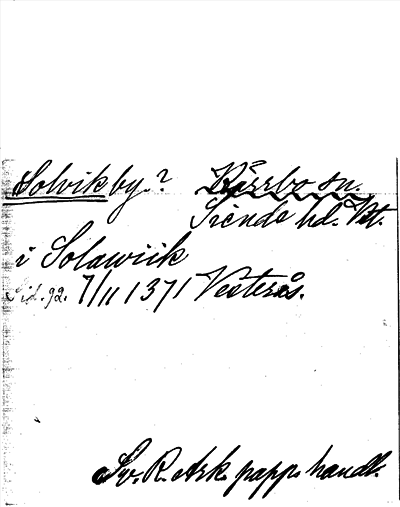 Solvik by? Kärrbo sn.
Siende hd. Vtl.
i Solawiik
Sid. 92. 7/11 1371 Vesterås.
Sv. R. Ark. papp. handl.